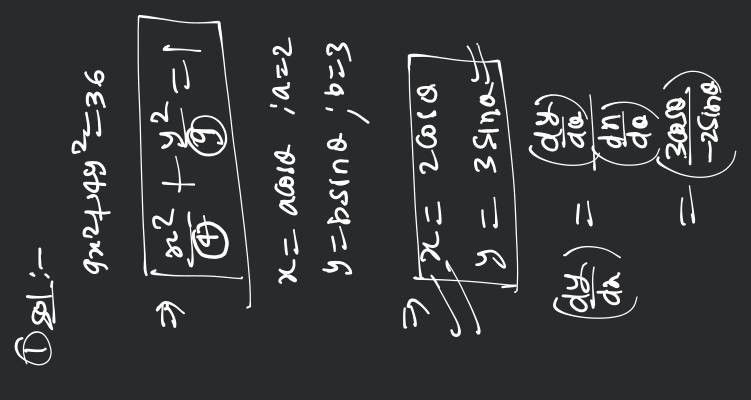 ① Sol:-
9x²+4y²=36
⇒ x²/4 + y²/9 = 1
x = acosθ ; a=2
y = bsinθ ; b=3
⇒ x = 2cosθ
y = 3sinθ
(dy/dx) = (dy/dθ)/(dx/dθ)
= (3cosθ/-2sinθ)